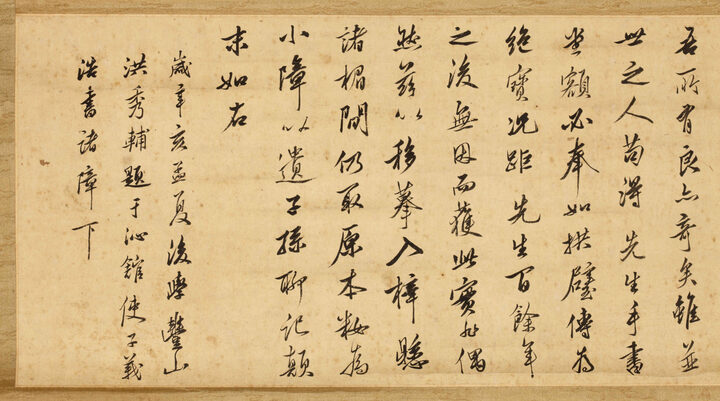 吾所有良亦奇矣雖並
世之人苟得先生手書
堂額必奉如拱璧傳爲
絶寶況距先生百餘年
之後無因而獲此寶非偶
然茲以移摹入梓懸
諸楣間仍取原本粧為
小障以遺子孫聊記顛
末如右
歲辛亥孟夏後學豐山
洪秀輔題于沁館使子義
浩書諸障下